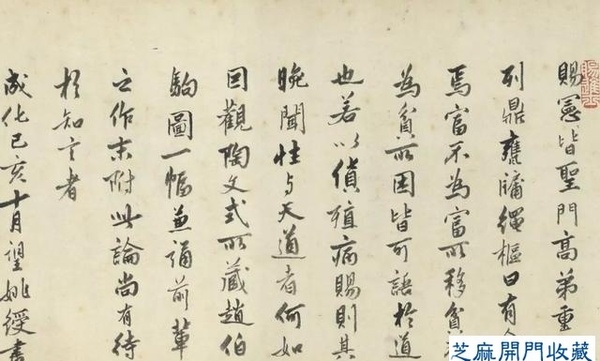 賜憲皆聖門高弟重
列鼎甕牖繩樞日有
焉富不為富所移貧
為貧所困皆可語於道
也若以貨殖病賜則其
晚聞性与天道者何如
因觀陶文式所藏趙伯
駒圖一幅兼誦前輩
之作末附此論尚有待
於知言者
成化己亥十月望姚綬書
芝麻開門收藏